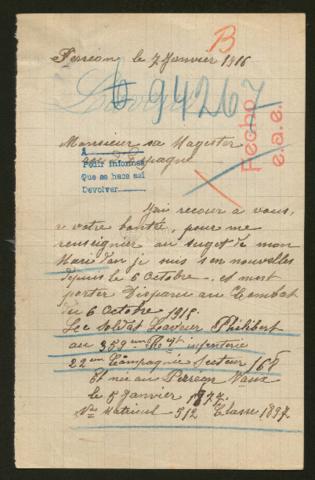 B
Perréon le 7 Janvier 1916
94267
Monsieur sa Magester
Espagne
A
Pour informer
Que se hace asi
Devolver
Fecho
e.a.e.
J'ai recour à vous,
a votre bonté, pour me
renseigner au suget de mon
Mari dan je suis san nouvelles
depuis le 6 Octobre, et mort
porter Disparu au Combat
du 6 Octobre 1915.
Le Soldat Philibert
au 359 em Regt infenterie
22 em Compagnie Secteur 168
Et née au Perréon Vaux
le 5 Janvier 1877.
No Matricul 512 Classe 1897.